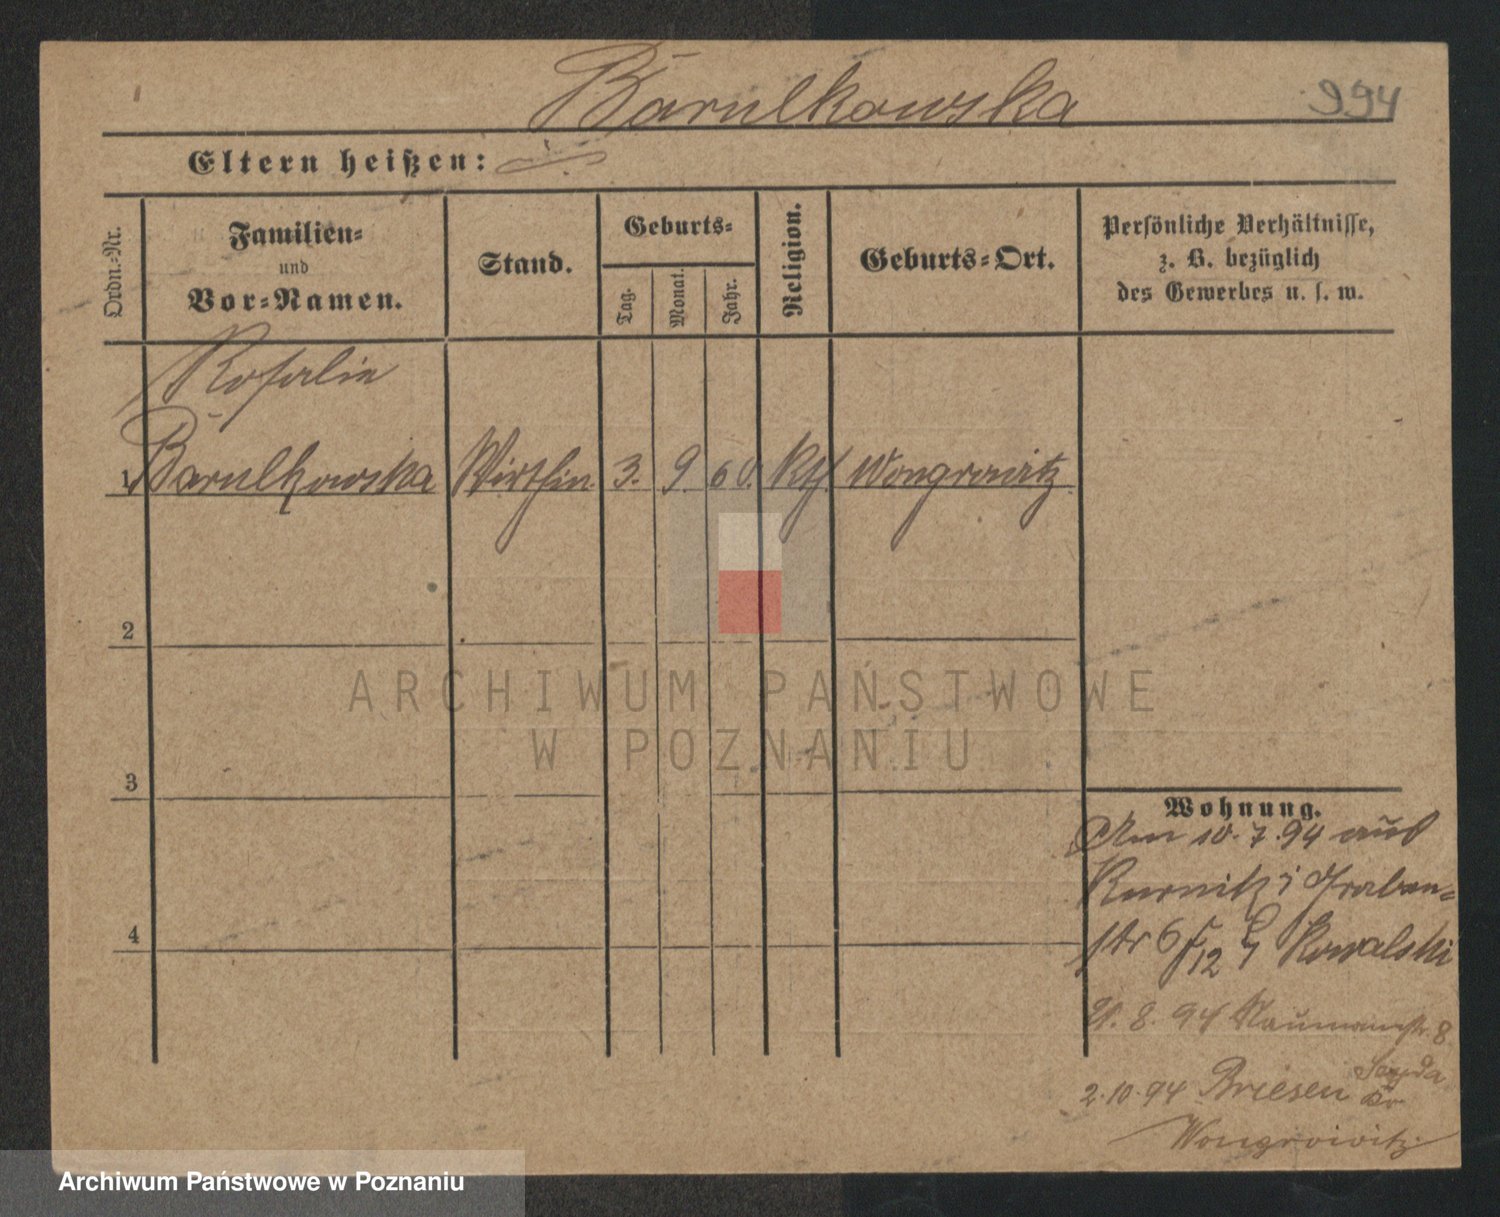 Barulkowska
994
Eltern heißen:
Ordn.-Nr.
Familien-
und
Vor-Namen.
Stand.
Geburts-
Tag.
Monat.
Jahr.
Religion.
Geburts-Ort.
Persönliche Verhältnisse,
z. B. bezüglich
des Gewerbes u. s. w.
Rosalie
1 Barulkowska Wirthin 3. 9. 60. Kth Wongrowitz
2
3
4
Wohnung.
Am 10.7.94 aus
Kurnik Graben-
str 6 Kowalski
8. 94 Naumannstr. 8
2.10.94 Briesen
Wongrowitz
ARCHIWUM PAŃSTWOWE
W POZNANIU
Archiwum Państwowe w Poznaniu